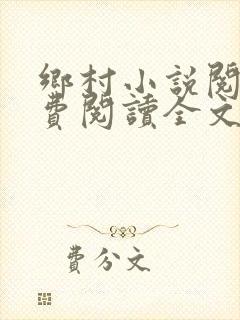 鄉村小説閱
費閱讀全文
費分文